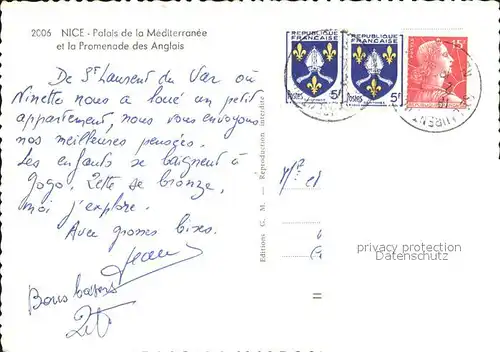 2006 NICE - Palais de la Méditerranée
et la Promenade des Anglais
De St Laurent du Var où
Ninette nous a loué un petit
appartement, nous vous envoyons
nos meilleures pensées.
Les enfants se baignent à
gogo. Zette se bronze,
moi j'explore.
Avec grosses bises.
Jean
Bons baisers
Editions G. M. - Reproduction interdite
REPUBLIQUE
FRANÇAISE
Postes 5F
REPUBLIQUE
FRANÇAISE
Postes 5F
15F
Mr et
privacy protection
Datenschutz